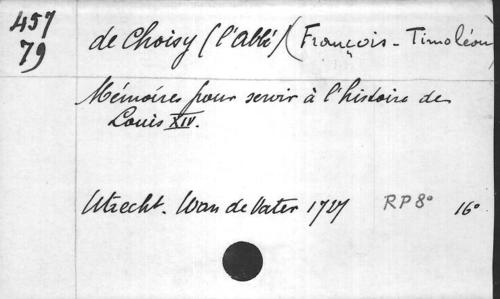 457
79
de Choisy (l'abbé) (François-Timoléon)
Mémoires pour servir à l'histoire de
Louis XIV.
Utrecht. Wan de Vater 1727 RP 8° 16°